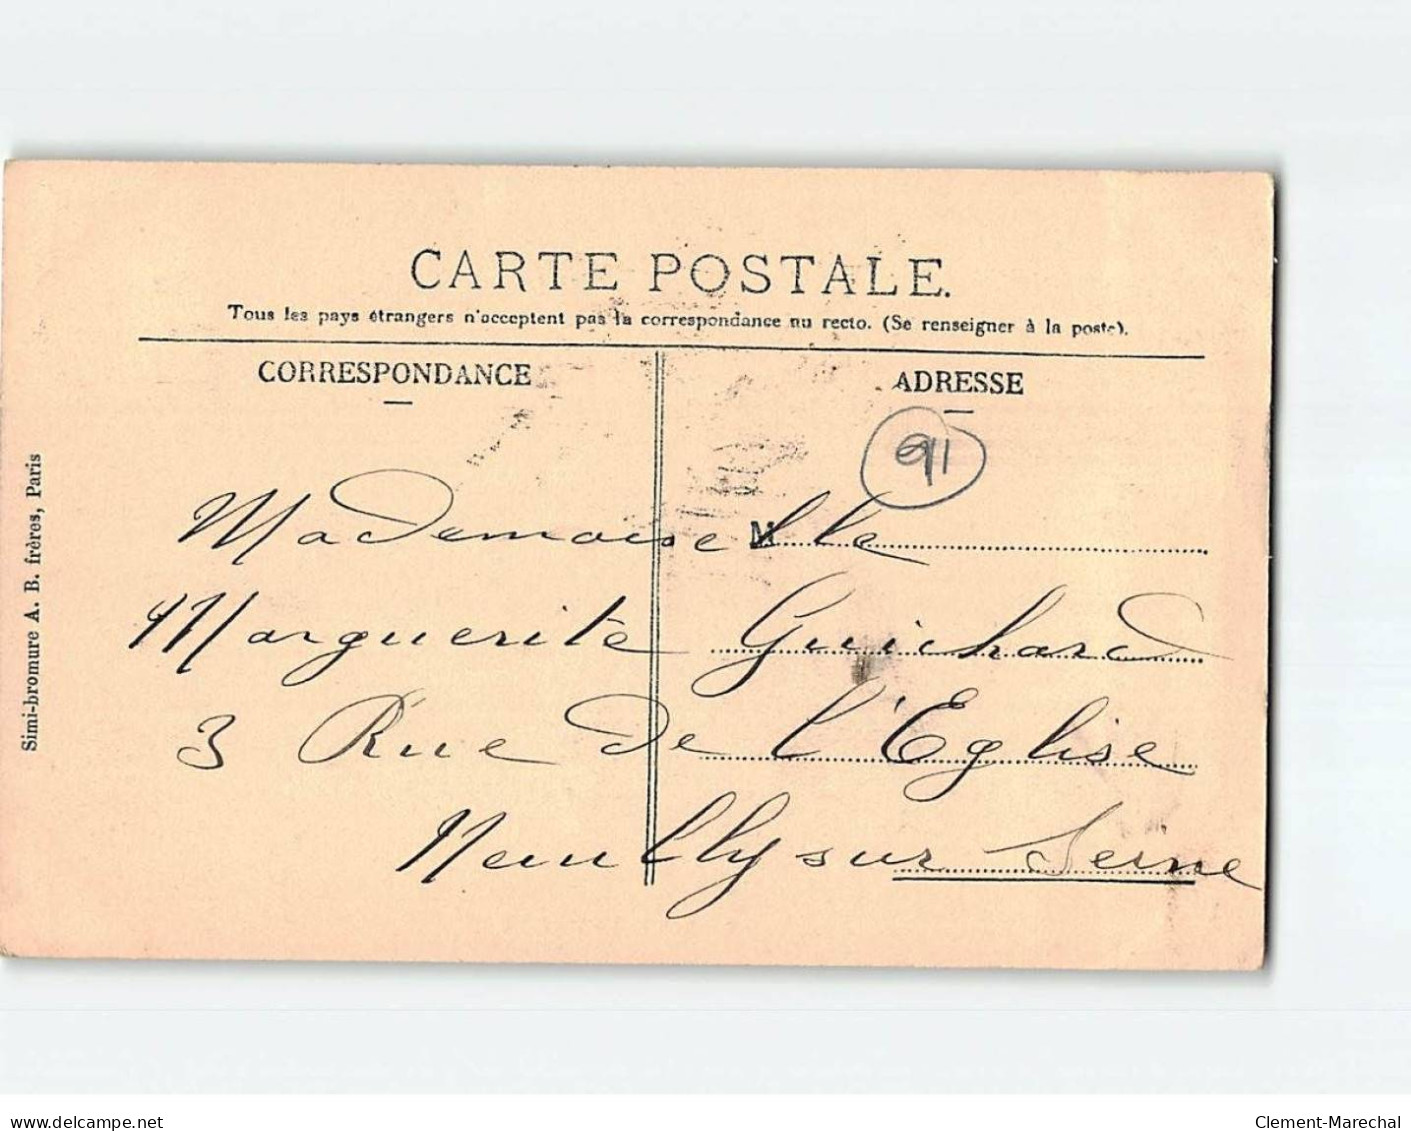 CARTE POSTALE.
Tous les pays étrangers n'acceptent pas la correspondance au recto. (Se renseigner à la poste).
CORRESPONDANCE
ADRESSE
91
M
Mademoiselle
Marguerite Guichard
3 Rue de l'Eglise
Neuilly sur Seine
Simi-bromure A. B. frères, Paris
delcampe.net
Clement-Marechal